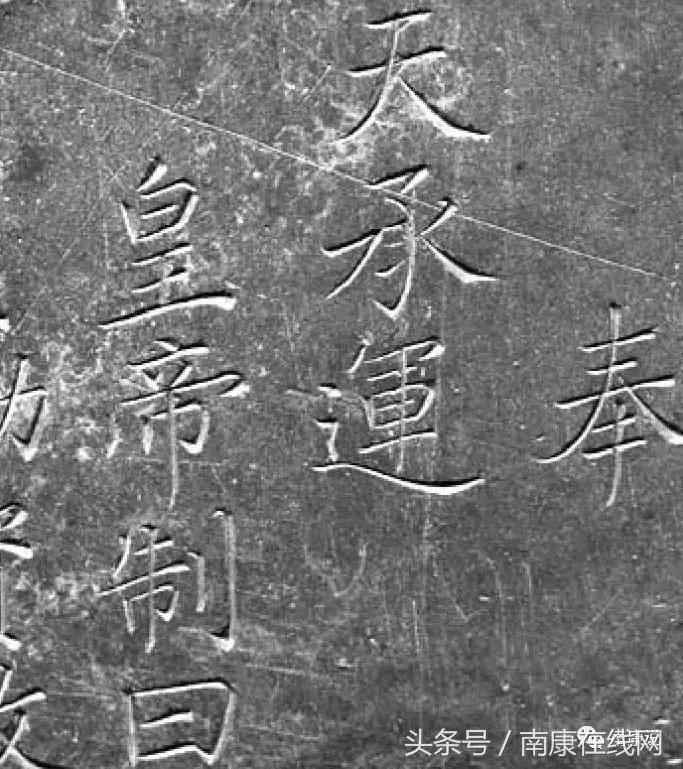 奉
天承運
皇帝制曰
头条号 / 南康在线网